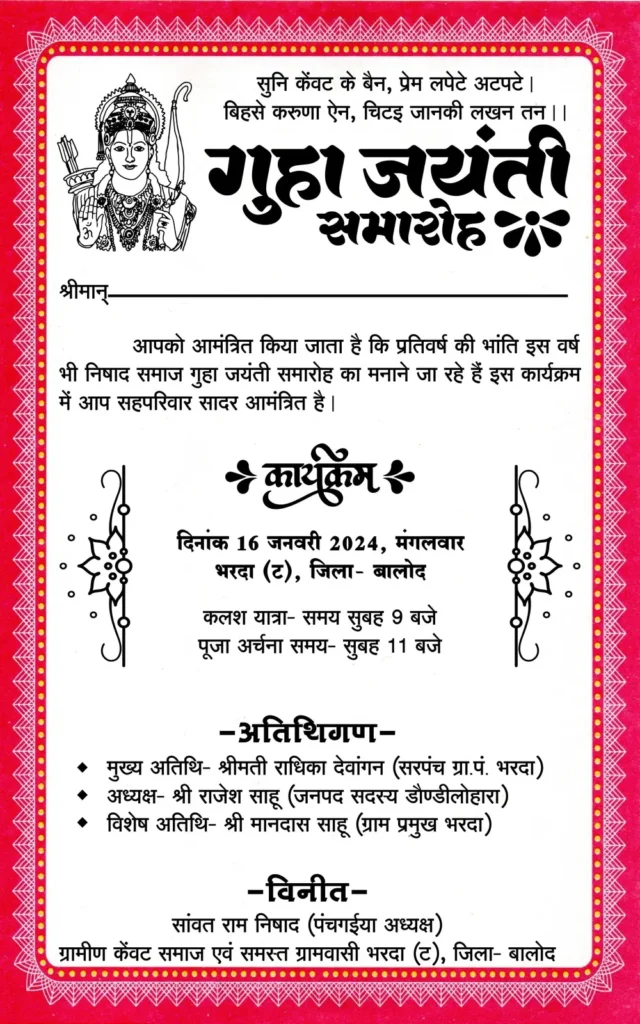 सुनि केंवट के बैन, प्रेम लपेटे अटपटे।
बिहसे करुणा ऐन, चिटइ जानकी लखन तन।।
गुहा जयंती
समारोह
श्रीमान्
आपको आमंत्रित किया जाता है कि प्रतिवर्ष की भांति इस वर्ष
भी निषाद समाज गुहा जयंती समारोह का मनाने जा रहे हैं इस कार्यक्रम
में आप सहपरिवार सादर आमंत्रित है।
कार्यक्रम
दिनांक 16 जनवरी 2024, मंगलवार
भरदा (ट), जिला- बालोद
कलश यात्रा- समय सुबह 9 बजे
पूजा अर्चना समय- सुबह 11 बजे
-अतिथिगण-
◆ मुख्य अतिथि- श्रीमती राधिका देवांगन (सरपंच ग्रा.पं. भरदा)
◆ अध्यक्ष- श्री राजेश साहू (जनपद सदस्य डौण्डीलोहारा)
◆ विशेष अतिथि- श्री मानदास साहू (ग्राम प्रमुख भरदा)
-विनीत-
सांवत राम निषाद (पंचगईया अध्यक्ष)
ग्रामीण केंवट समाज एवं समस्त ग्रामवासी भरदा (ट), जिला- बालोद